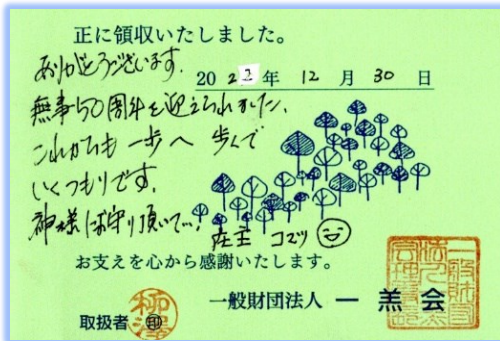 正に領収いたしました。
ありがとうございます。
20 2 年 12 月 30 日
無事50周年を迎えられました、
これからも一歩一歩 歩んで
いくつもりです。
神様に守り頂いて…
コマツ
お支えを心から感謝いたします。
一般財団法人 一 羔 会
取扱者 ㊞
柳澤